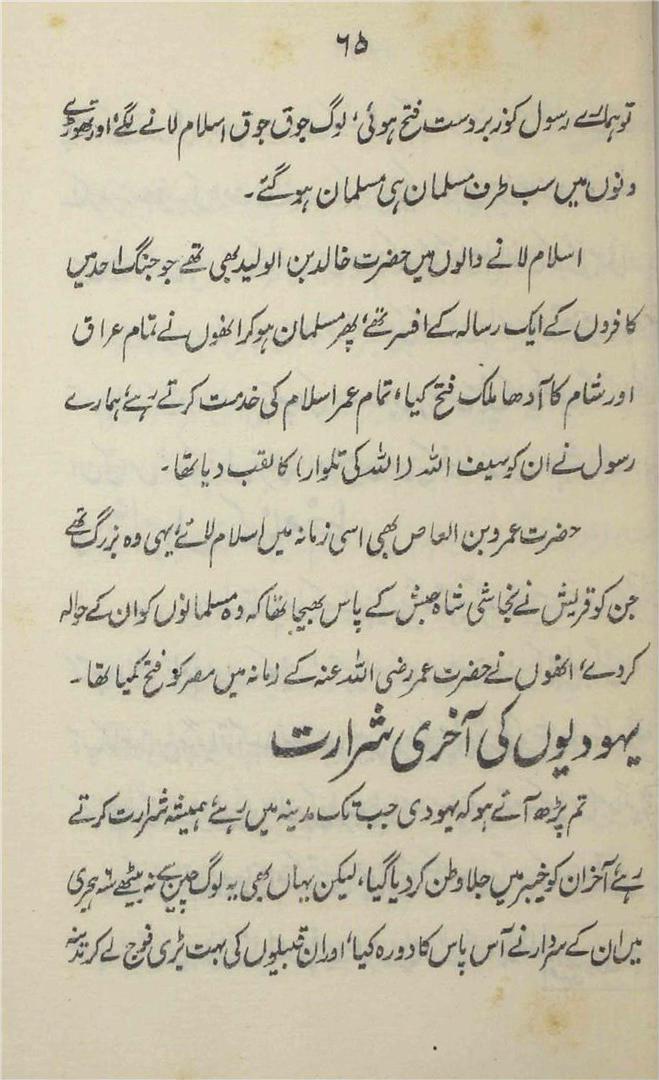 ۶۵
تو ہمارے رسول کو زبردست فتح ہوئی، لوگ جوق جوق اسلام لانے لگے، اور تھوڑے
دنوں میں سب طرف مسلمان ہی مسلمان ہو گئے۔
اسلام لانے والوں میں حضرت خالد بن الولید بھی تھے جو جنگ احد میں
کافروں کے ایک رسالہ کے افسر تھے، پھر مسلمان ہو کر انھوں نے تمام عراق
اور شام کا آدھا ملک فتح کیا، تمام عمر اسلام کی خدمت کرتے رہے، ہمارے
رسول نے ان کو سیف اللہ (اللہ کی تلوار) کا لقب دیا تھا۔
حضرت عمرو بن العاص بھی اسی زمانہ میں اسلام لائے، یہی وہ بزرگ تھے
جن کو قریش نے نجاشی شاہ حبش کے پاس بھیجا تھا کہ وہ مسلمانوں کو ان کے حوالہ
کر دے، انھوں نے حضرت عمر رضی اللہ عنہ کے زمانہ میں مصر کو فتح کیا تھا۔
یہودیوں کی آخری شرارت
تم پڑھ آئے ہو کہ یہودی جب تک مدینہ میں رہے، ہمیشہ شرارت کرتے
رہے، آخر ان کو خیبر میں جلا وطن کر دیا گیا، لیکن یہاں بھی یہ لوگ چین سے نہ بیٹھے ۶ ہجری
میں ان کے سردار نے آس پاس کا دورہ کیا، اور ان قبیلوں کی بہت بڑی فوج لے کر مدینہ